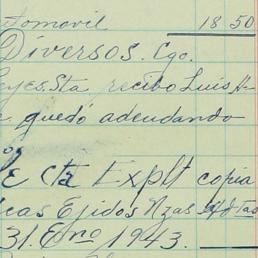 tomovil 18 50
Diversos. Cgo.
eyes. Sta recibo Luis H-
quedó adeudando
os
e cta Explt copia
icas Ejidos Nzas
31. Eno 1943.